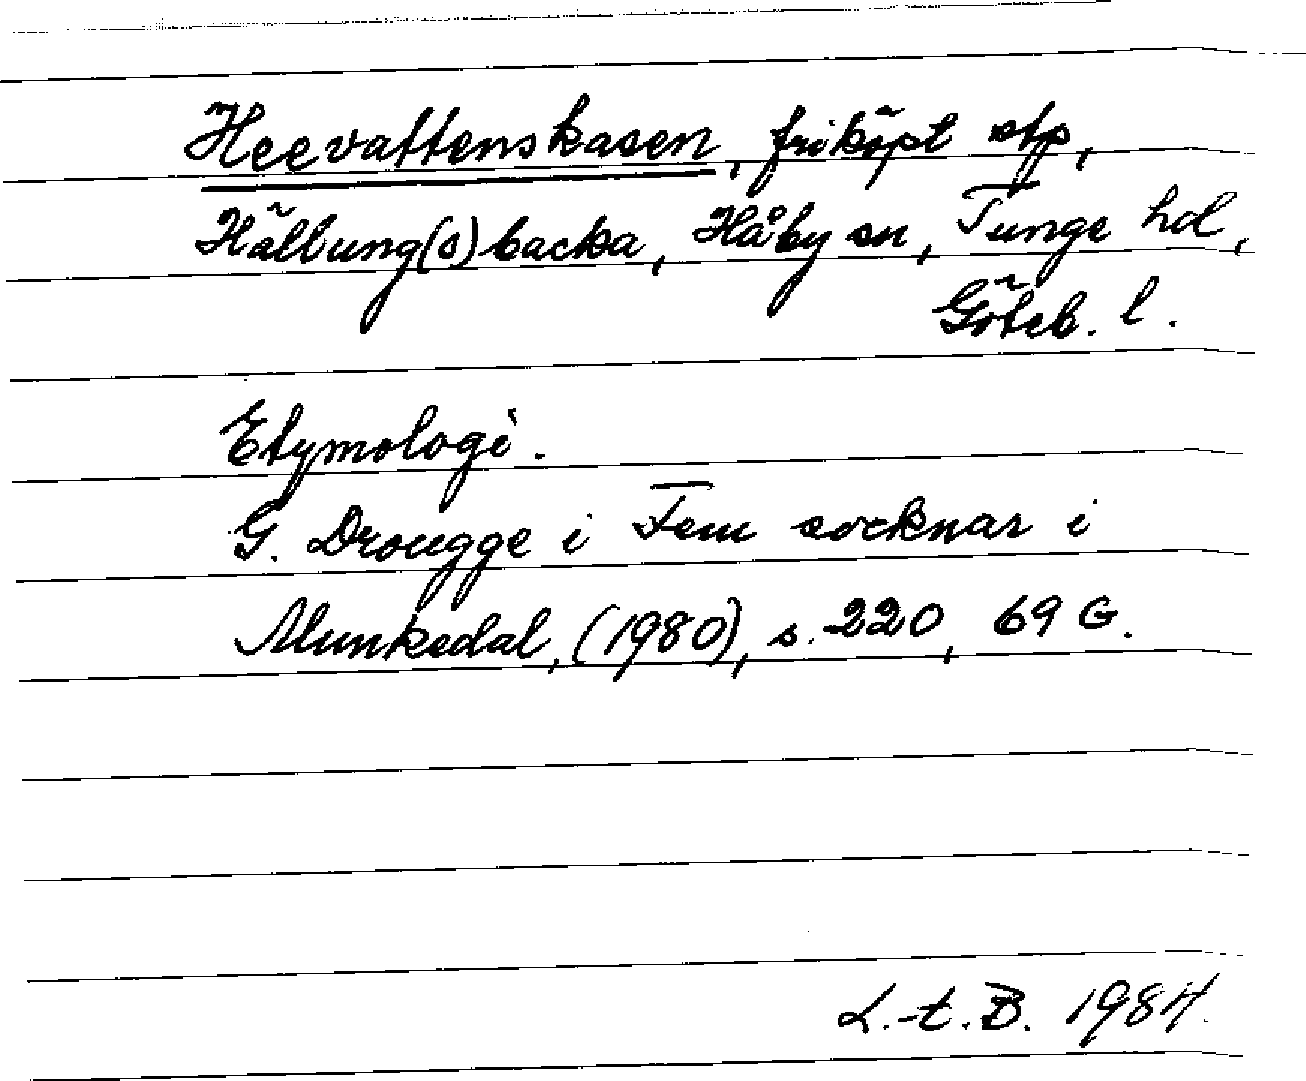 Heevattenskasen, friköpt stp,
Hällung(s)backa, Håby sn, Tunge hd,
Göteb. l.
Etymologi.
G. Drougge i Fem socknar i
Munkedal, (1980), s. 220, 69 G.
L.-t. B. 1984.